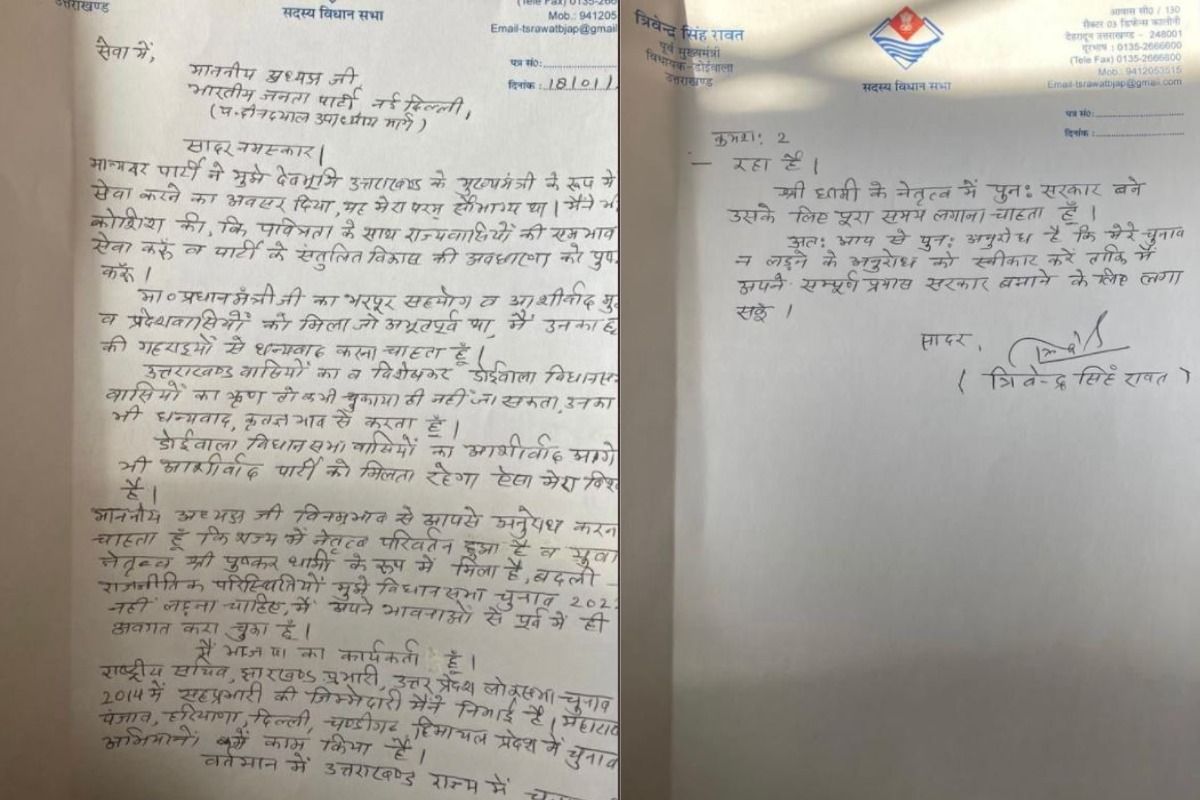 उत्तराखण्ड
सदस्य विधान सभा
(Tele Fax) 0135-266
Mob.: 941205
Email-tsrawatbjap@gmail
पत्र सं०:
दिनांक : 18/01/
सेवा में,
माननीय अध्यक्ष जी
भारतीय जनता पार्टी नई दिल्ली,
(पं. दीनदयाल उपाध्याय मार्ग)
सादर नमस्कार।
मान्यवर पार्टी ने मुझे देवभूमि उत्तराखण्ड के मुख्यमंत्री के रूप में
सेवा करने का अवसर दिया, यह मेरा परम सौभाग्य था। मैंने भी
कोशिश की, कि पवित्रता के साथ राज्यवासियों की सम भाव
सेवा करूँ व पार्टी के संतुलित विकास की अवधारणा को पुष्
करूँ।
मा० प्रधानमंत्री जी का भरपूर सहयोग व आशीर्वाद मु
व प्रदेशवासियों को मिला जो अभूतपूर्व था, मैं उनका हृ
की गहराइयों से धन्यवाद करना चाहता हूँ।
उत्तराखण्ड वासियों का व विशेषकर डोईवाला विधानस
वासियों का ऋण तो कभी चुकाया ही नहीं जा सकता, उनका
भी धन्यवाद, कृतज्ञ भाव से करता हूँ।
डोईवाला विधानसभा वासियों का आशीर्वाद आगे
भी आशीर्वाद पार्टी को मिलता रहेगा ऐसा मेरा विश्
है।
माननीय अध्यक्ष जी विनम्र भाव से आपसे अनुरोध करन
चाहता हूँ कि राज्य में नेतृत्व परिवर्तन हुआ है व युवा
नेतृत्व श्री पुष्कर धामी के रूप में मिला है, बदली
राजनीतिक परिस्थितियों मुझे विधानसभा चुनाव 202
नहीं लड़ना चाहिए, मैं अपने भावनाओं से पूर्व में ही
अवगत करा चुका हूँ।
मैं भाजपा का कार्यकर्ता हूँ।
राष्ट्रीय सचिव, झारखण्ड प्रभारी, उत्तर प्रदेश लोकसभा चुनाव
2014 में सहप्रभारी की जिम्मेदारी मैंने निभाई है। महारा
पंजाब, हरियाणा, दिल्ली, चण्डीगढ़, हिमाचल प्रदेश में चुनाव
अभियानों में काम किया है।
वर्तमान में उत्तराखण्ड राज्य में
त्रिवेन्द्र सिंह रावत
पूर्व मुख्यमंत्री
विधायक-डोईवाला
उत्तराखण्ड
सदस्य विधान सभा
आवास सं० / 130
सैक्टर 03 डिफेन्स कालोनी
देहरादून उत्तराखण्ड - 248001
दूरभाष : 0135-2666600
(Tele Fax) 0135-2666800
Mob.: 9412053515
Email-tsrawatbjap@gmail.com
पत्र सं०:
दिनांक :
क्रमश: 2
— रहा है।
श्री धामी के नेतृत्व में पुन: सरकार बने
उसके लिए पूरा समय लगाना चाहता हूँ।
अत: आप से पुन: अनुरोध है कि मेरे चुनाव
न लड़ने के अनुरोध को स्वीकार करें ताकि मैं
अपने सम्पूर्ण प्रयास सरकार बनाने के लिए लगा
सकूँ।
सादर,
( त्रिवेन्द्र सिंह रावत )